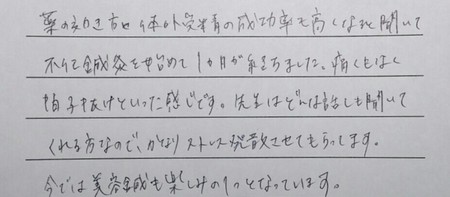 薬の効き方や体外受精の成功率も高くなると聞いて
鍼灸を始めて1カ月が経ちました。痛くもなく
拍子抜けといった感じです。先生はどんな話しも聞いて
くれる方なので、かなりストレス発散させてもらってます。
今では美容鍼も楽しみの1つとなっています。